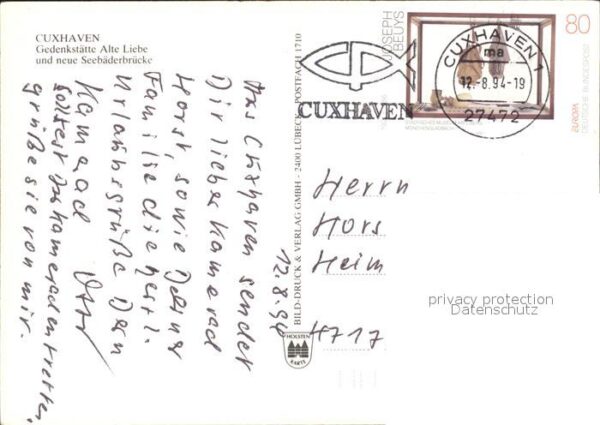 CUXHAVEN
Gedenkstätte Alte Liebe
und neue Seebäderbrücke
12.8.94
Aus Cuxhaven sendet
Dir lieber Kamerad
Horst, sowie Deiner
Familie die herzl.
Urlaubsgrüße Dein
Kamerad Otto
solltest Du Kameraden treffen,
grüße sie von mir.
BILD-DRUCK & VERLAG GMBH - 2400 LÜBECK - POSTFACH 1710
HOLSTEN
KARTE
CUXHAVEN
JOSEPH
BEUYS
80
EUROPA
DEUTSCHE BUNDESPOST
MÖNCHENGLADBACH
CUXHAVEN 1
ma
12.-8.94-19
27472
Herrn
Hors
Heim
4717
privacy protection
Datenschutz